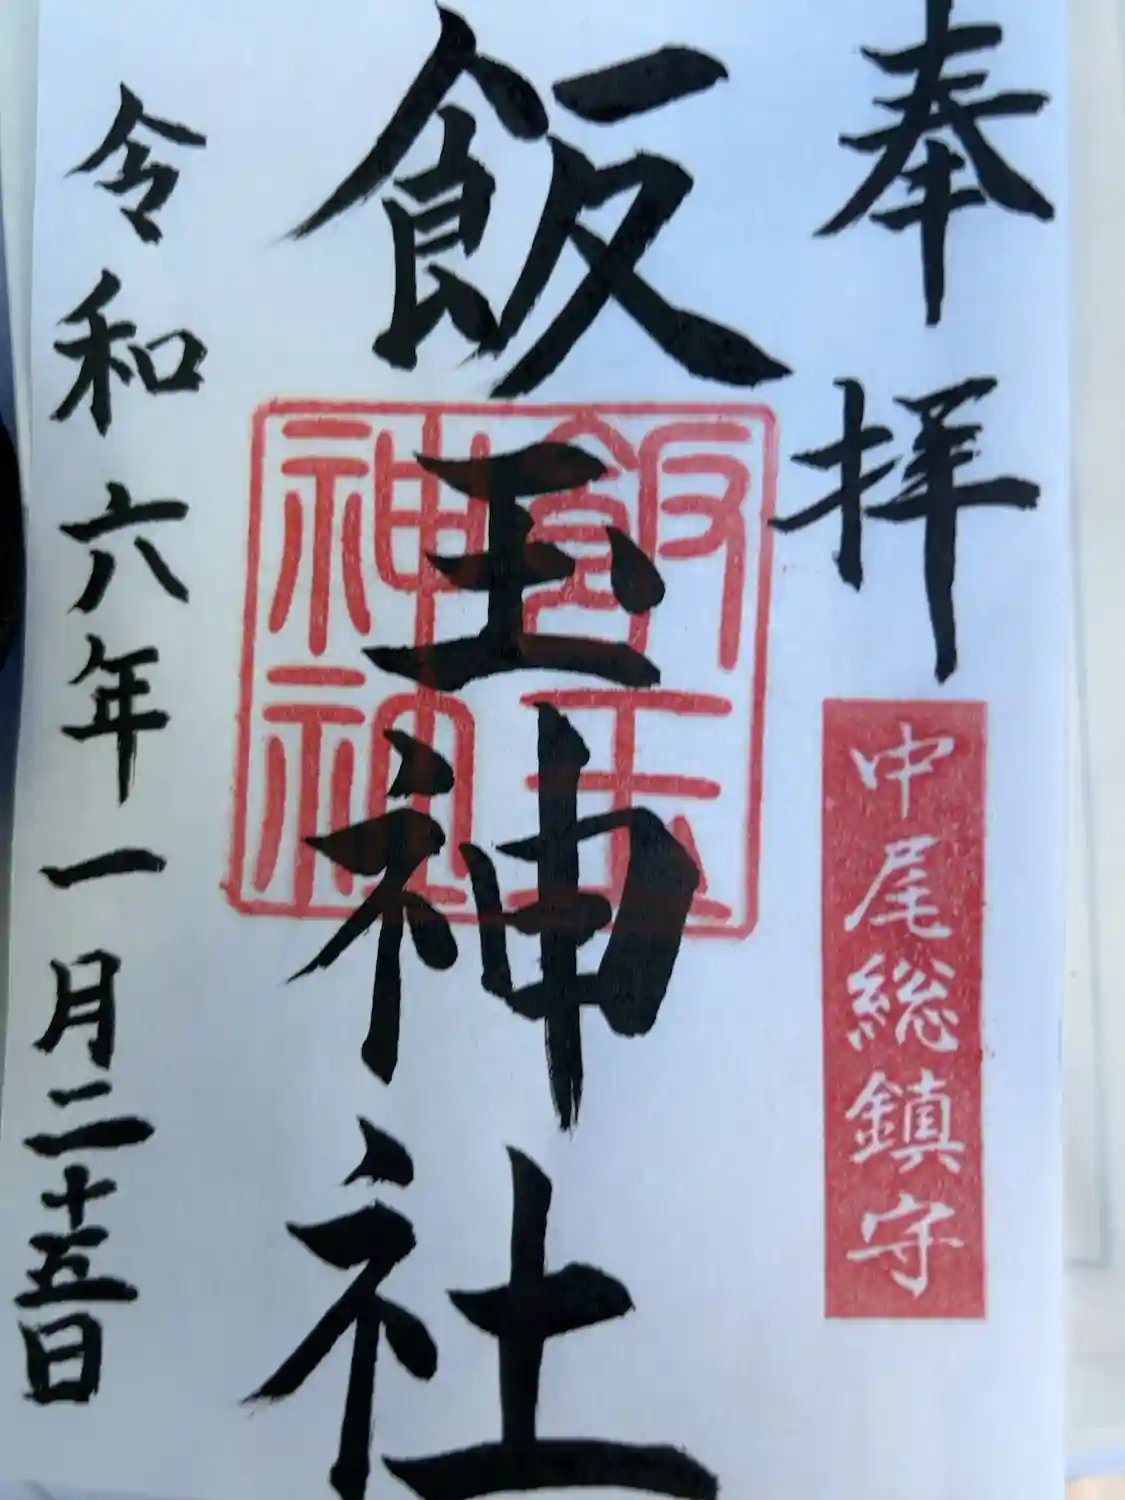 奉拝
中尾総鎮守
飯玉神社
飯玉
神社
令和六年一月二十五日